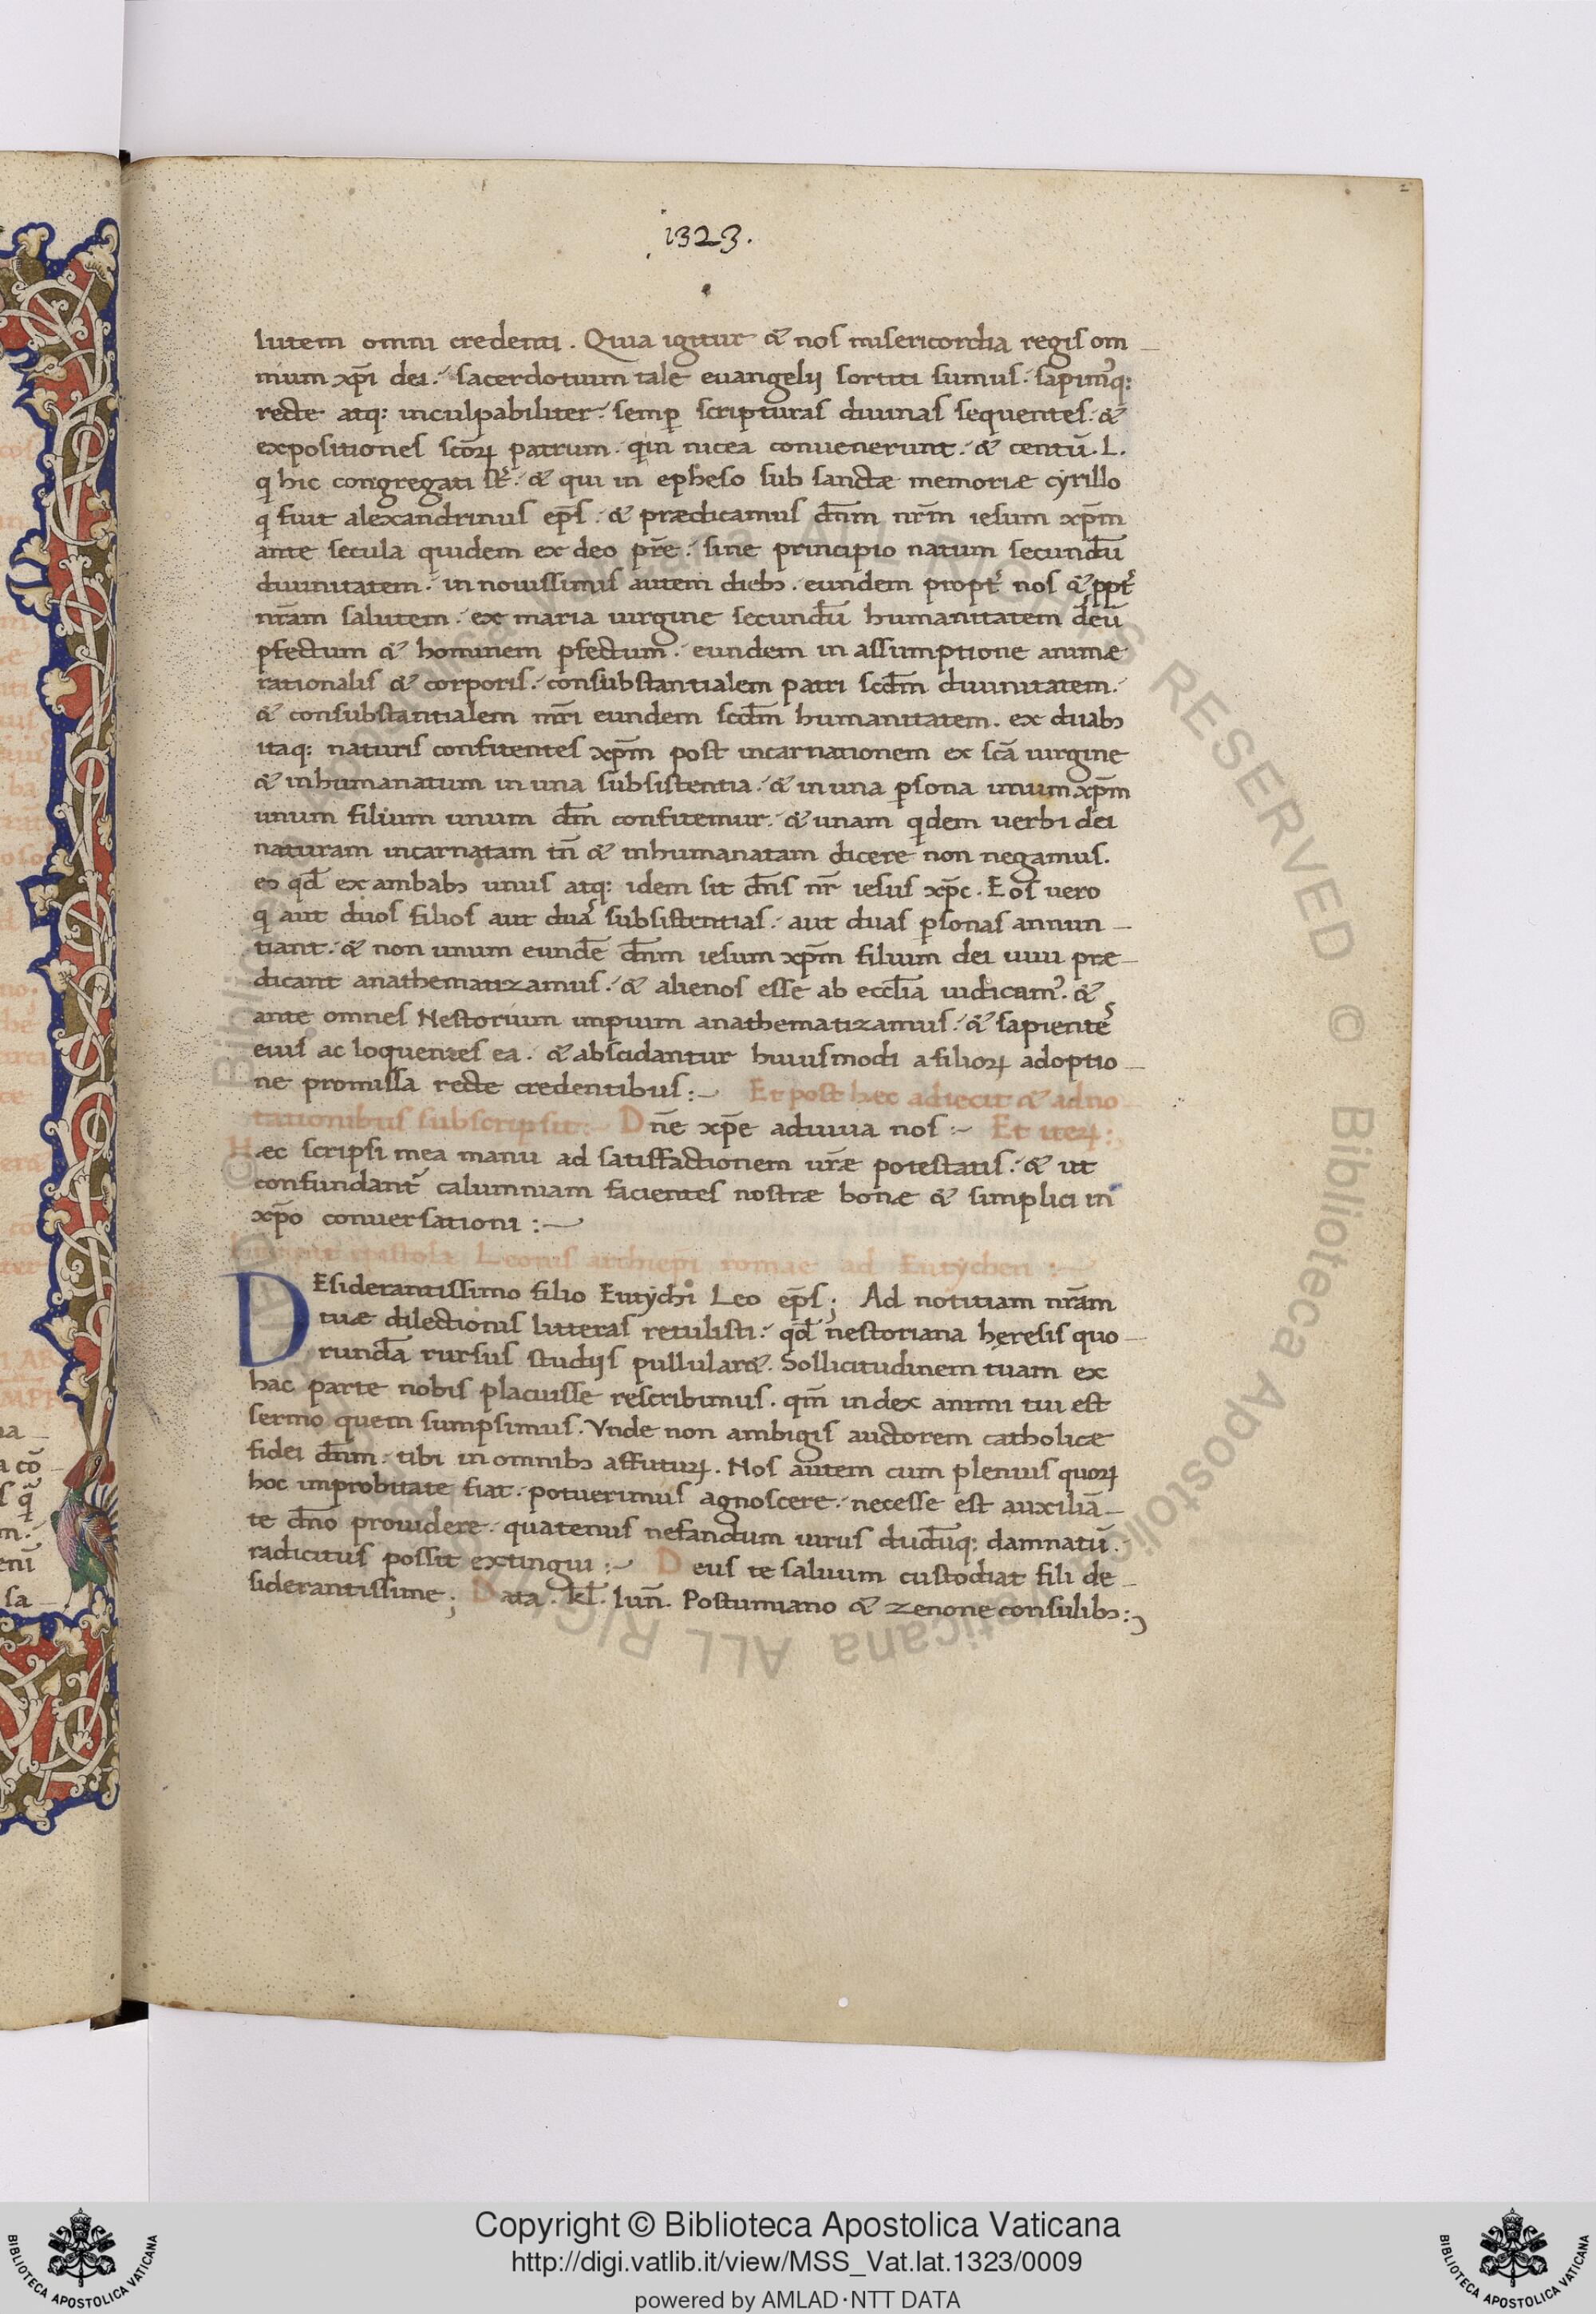 2
1323.
lutem omni credenti. Quia igitur & nos misericordia regis om-
nium xp̄i dei: sacerdotium tale euangelij sortiti sumus: sapimꝰq:
recte atq: inculpabiliter: semp̄ scripturas diuinas sequentes: &
expositiones scōꝝ patrum: qui in nicea conuenerunt: & centū. L.
q hic congregati st̄: & qui in epheso sub sanctæ memoriæ cyrillo
q fuit alexandrinus ep̄s: & prædicamus dn̄m nr̄m iesum xp̄m
ante secula quidem ex deo pr̄e: sine principio natum secundū
diuinitatem: in nouissimis autem diebꝫ. eundem propt̄ nos & ppt̄
nr̄am salutem: ex maria uirgine secundū humanitatem deū
ꝑfectum & hominem ꝑfectum: eundem in assumptione animæ
rationalis & corporis: consubstantialem patri scdm̄ diuinitatem:
& consubstantialem mr̄i eundem scdm̄ humanitatem. ex duabꝫ
itaq: naturis confitentes xp̄m post incarnationem ex scā uirgine
& inhumanatum in una subsistentia: & in una ꝑsona unum xp̄m
unum filium unum dn̄m confitemur: & unam qdem uerbi dei
naturam incarnatam tn̄ & inhumanatam dicere non negamus.
eo qd̄ ex ambabꝫ unus atq: idem sit dn̄s nr̄ iesus xp̄c. Eos uero
q aut duos filios aut duas subsistentias: aut duas ꝑsonas annun-
tiant: & non unum eundē dn̄m iesum xp̄m filium dei uiui præ-
dicant anathematizamus: & alienos esse ab eccl̄ia iudicamꝰ: &
ante omnes Nestorium impium anathematizamus: & sapientes
eius ac loquentes ea: & abscidantur huiusmodi a filioꝝ adoptio-
ne promissa recte credentibus:- Et post hec adiecit & adno-
tationibus subscripsit:- Dn̄e xp̄e adiuua nos:- Et iteꝝ:
Hæc scripsi mea manu ad satisfactionem ur̄æ potestatis: & ut
confundant̄ calumniam facientes nostræ bonæ & simplici in
xp̄o conuersationi:-
epistola Leonis archiep̄i romae ad Eutychen:-
DEsiderantissimo filio Eutychi Leo ep̄s; Ad notitiam nr̄am
tuæ dilectionis litteras retulisti: qd̄ nestoriana hęresis quo-
rundā rursus studijs pullular&. Sollicitudinem tuam ex
hac parte nobis placuisse rescribimus. qm̄ index animi tui est
sermo quem sumpsimus. Vnde non ambigis auctorem catholicæ
fidei dn̄m: tibi in omnibꝫ affuturꝝ. Nos autem cum plenius quoꝝ
hoc improbitate fiat: potuerimus agnoscere: necesse est auxiliā-
te dn̄o prouidere: quatenus nefandum uirus dudūq: damnatū:
radicitus possit extingui:- Deus te saluum custodiat fili de-
siderantissime; Data. kl̄. Iun̄. Postumiano & zenone consulibꝫ:
© Biblioteca Apostolica Vaticana ALL RIGHTS RESERVED
© Biblioteca Apostolica Vaticana ALL RIGHTS RESERVED
Copyright © Biblioteca Apostolica Vaticana
http://digi.vatlib.it/view/MSS_Vat.lat.1323/0009
powered by AMLAD·NTT DATA
BIBLIOTECA APOSTOLICA VATICANA
BIBLIOTECA APOSTOLICA VATICANA